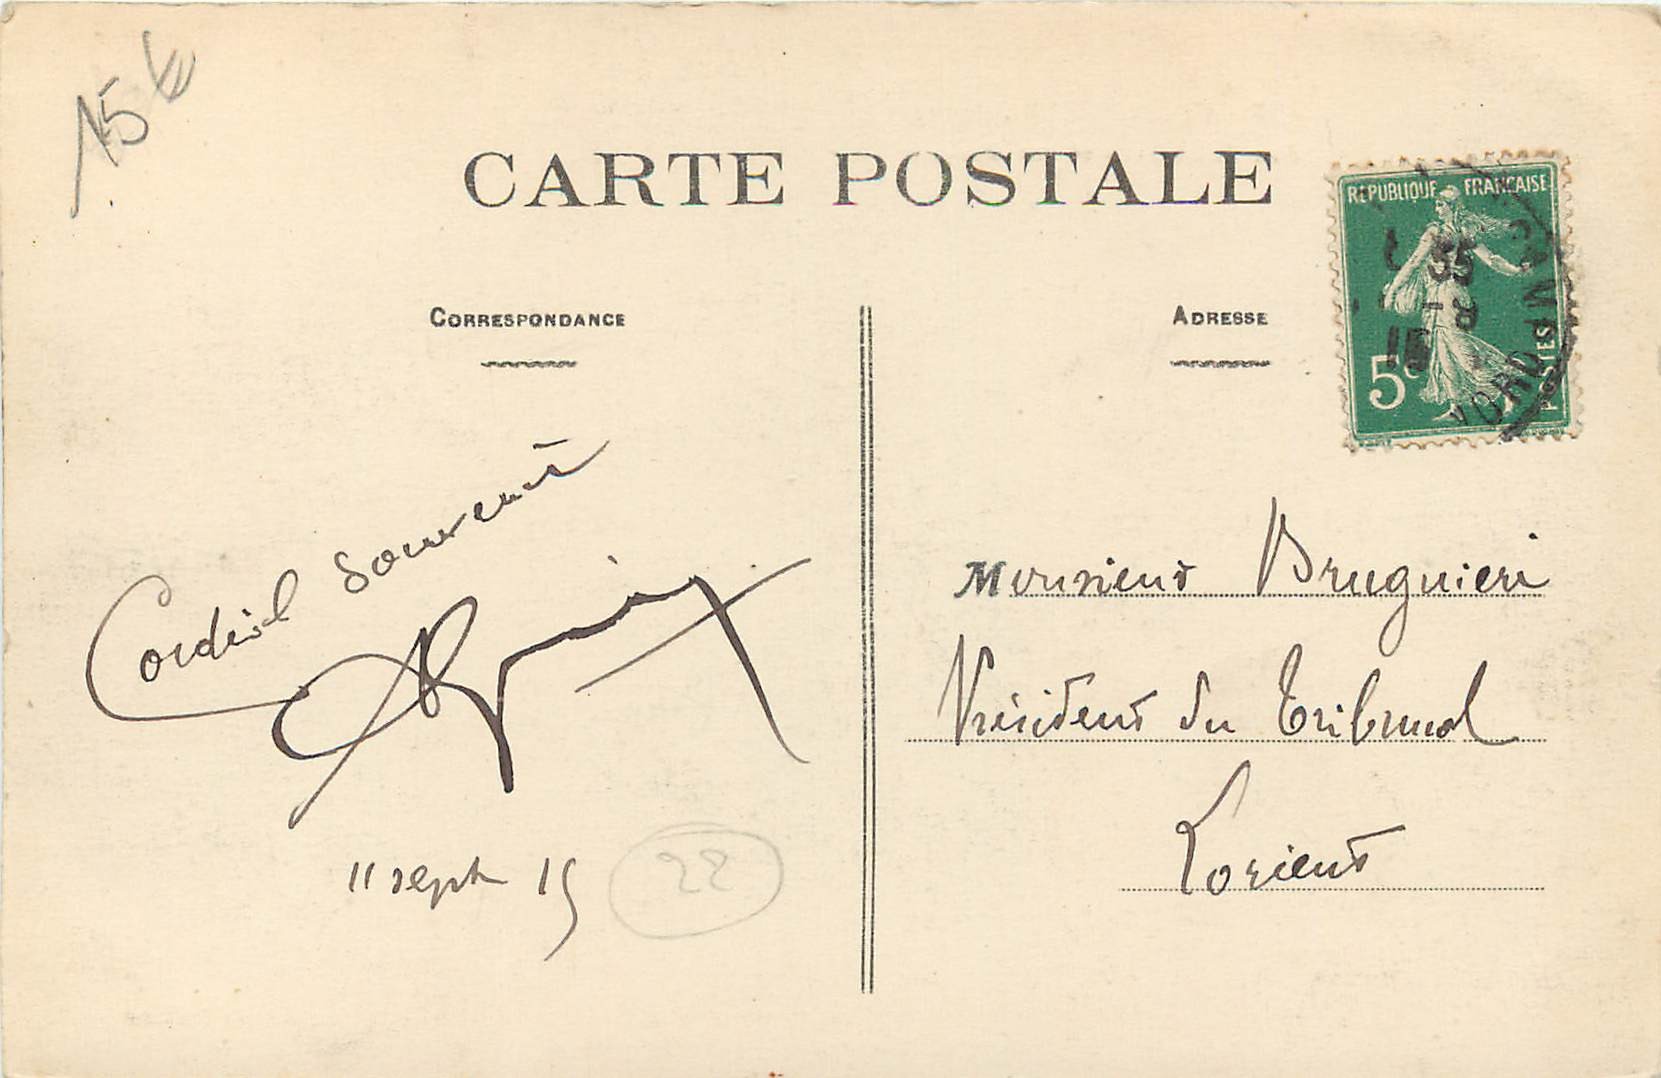 15 €
CARTE POSTALE
CORRESPONDANCE
ADRESSE
REPUBLIQUE FRANÇAISE
5c
POSTES
Cordial souvenir
11 sept 15
22
Monsieur Bruguieri
Président du Tribunal
Lorient